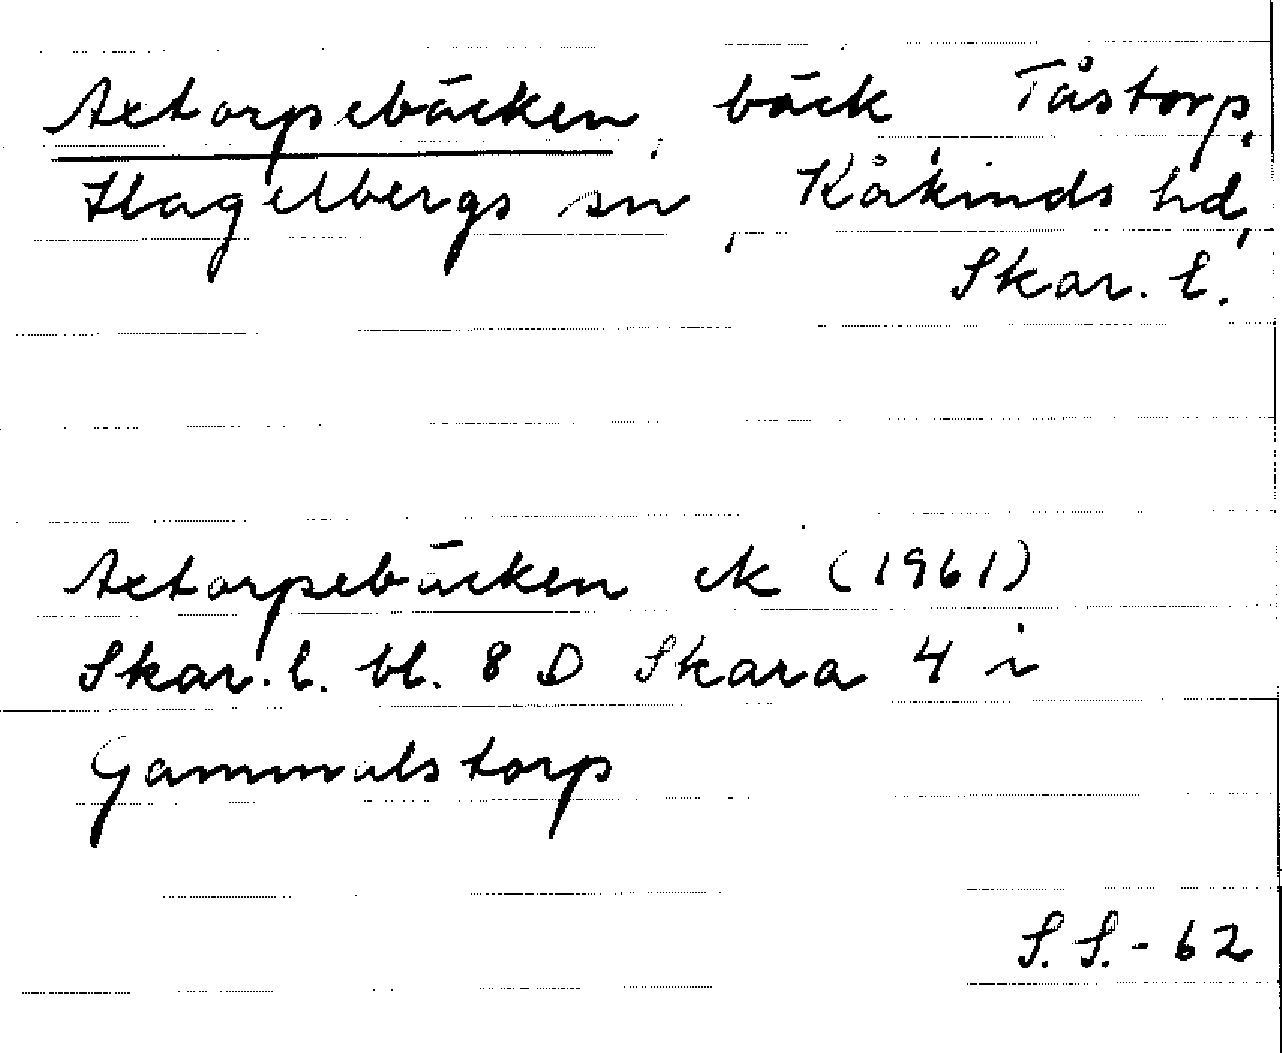 Axtorpebäcken, bäck Tåstorp,
Hagelbergs sn, Kåkinds hd,
Skar. l.
Axtorpebäcken ek (1961)
Skar. l. bl. 8 D Skara 4 i
Gammalstorp
S. S. - 62